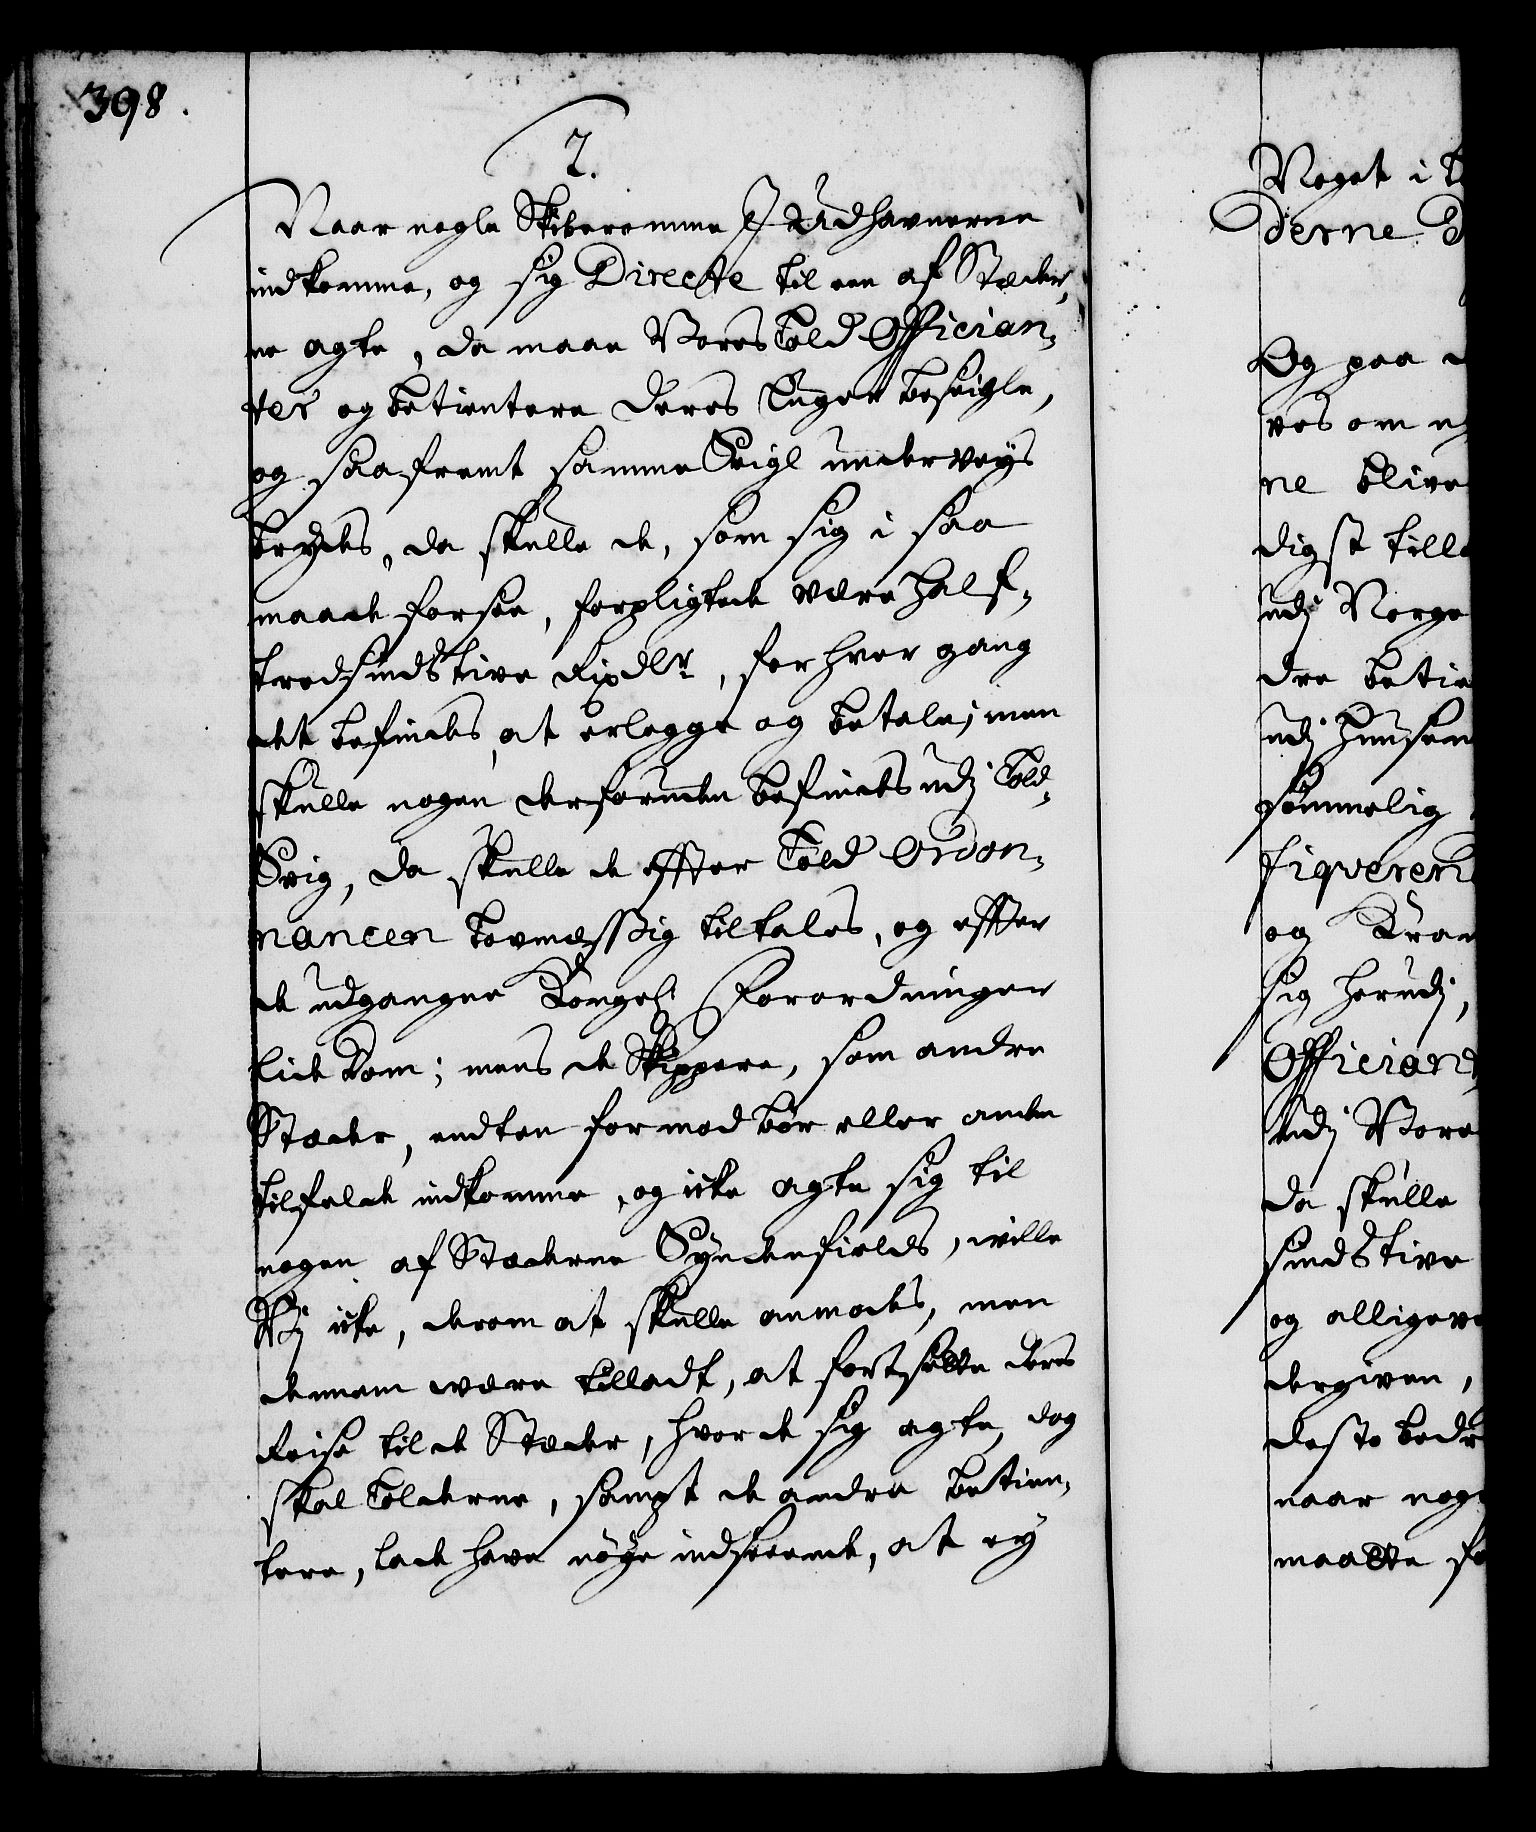 398.
2.
Naar nogle Skibe komme I Udhavnerne
indkomme, og sig Directe til een af Stæder,
ne agte, da maae Vores Told Offician,
ter og betientere deres Luger beseigle,
og saa fremt samme Seigl underveys
brydes, da skulle de, som sig i saa
maade forsee, forpligtede være half,
tredsindstive Rixdlr, for hver gang
det befindes, at erlegge og betale; men
skulle nogen derforuden befindes udj Told,
Svig, da skulle de effter Told Ordon,
nancen lovmæssig tiltales, og effter
de udgangne Kongel: Forordninger
lide Dom; mens de Skippere, som andre
Stæder, endten formedelst bør eller anden
tilfelde indkomme, og icke agte sig til
nogen af Stæderne Syndenfields, wille
Wj icke, derom at skulle anmodes, men
dennem være tilladt, at fortsette deres
Reise til de Stæder, hvor de sig agte, dog
skal Tolderne, sampt de andre betien,
tere, lade have nöye indseende, at ey
Noget i
derne
Og paa
ves om
ne blive
digst till
udj Norge
dre betie
udj Huusen
sömmelig
fiqverer
og Kram
sig herudj,
Officiant
udj Vore
da skulle
sindstive
og alligeve
dergiven,
desto bedr
naar nog
maatte fo